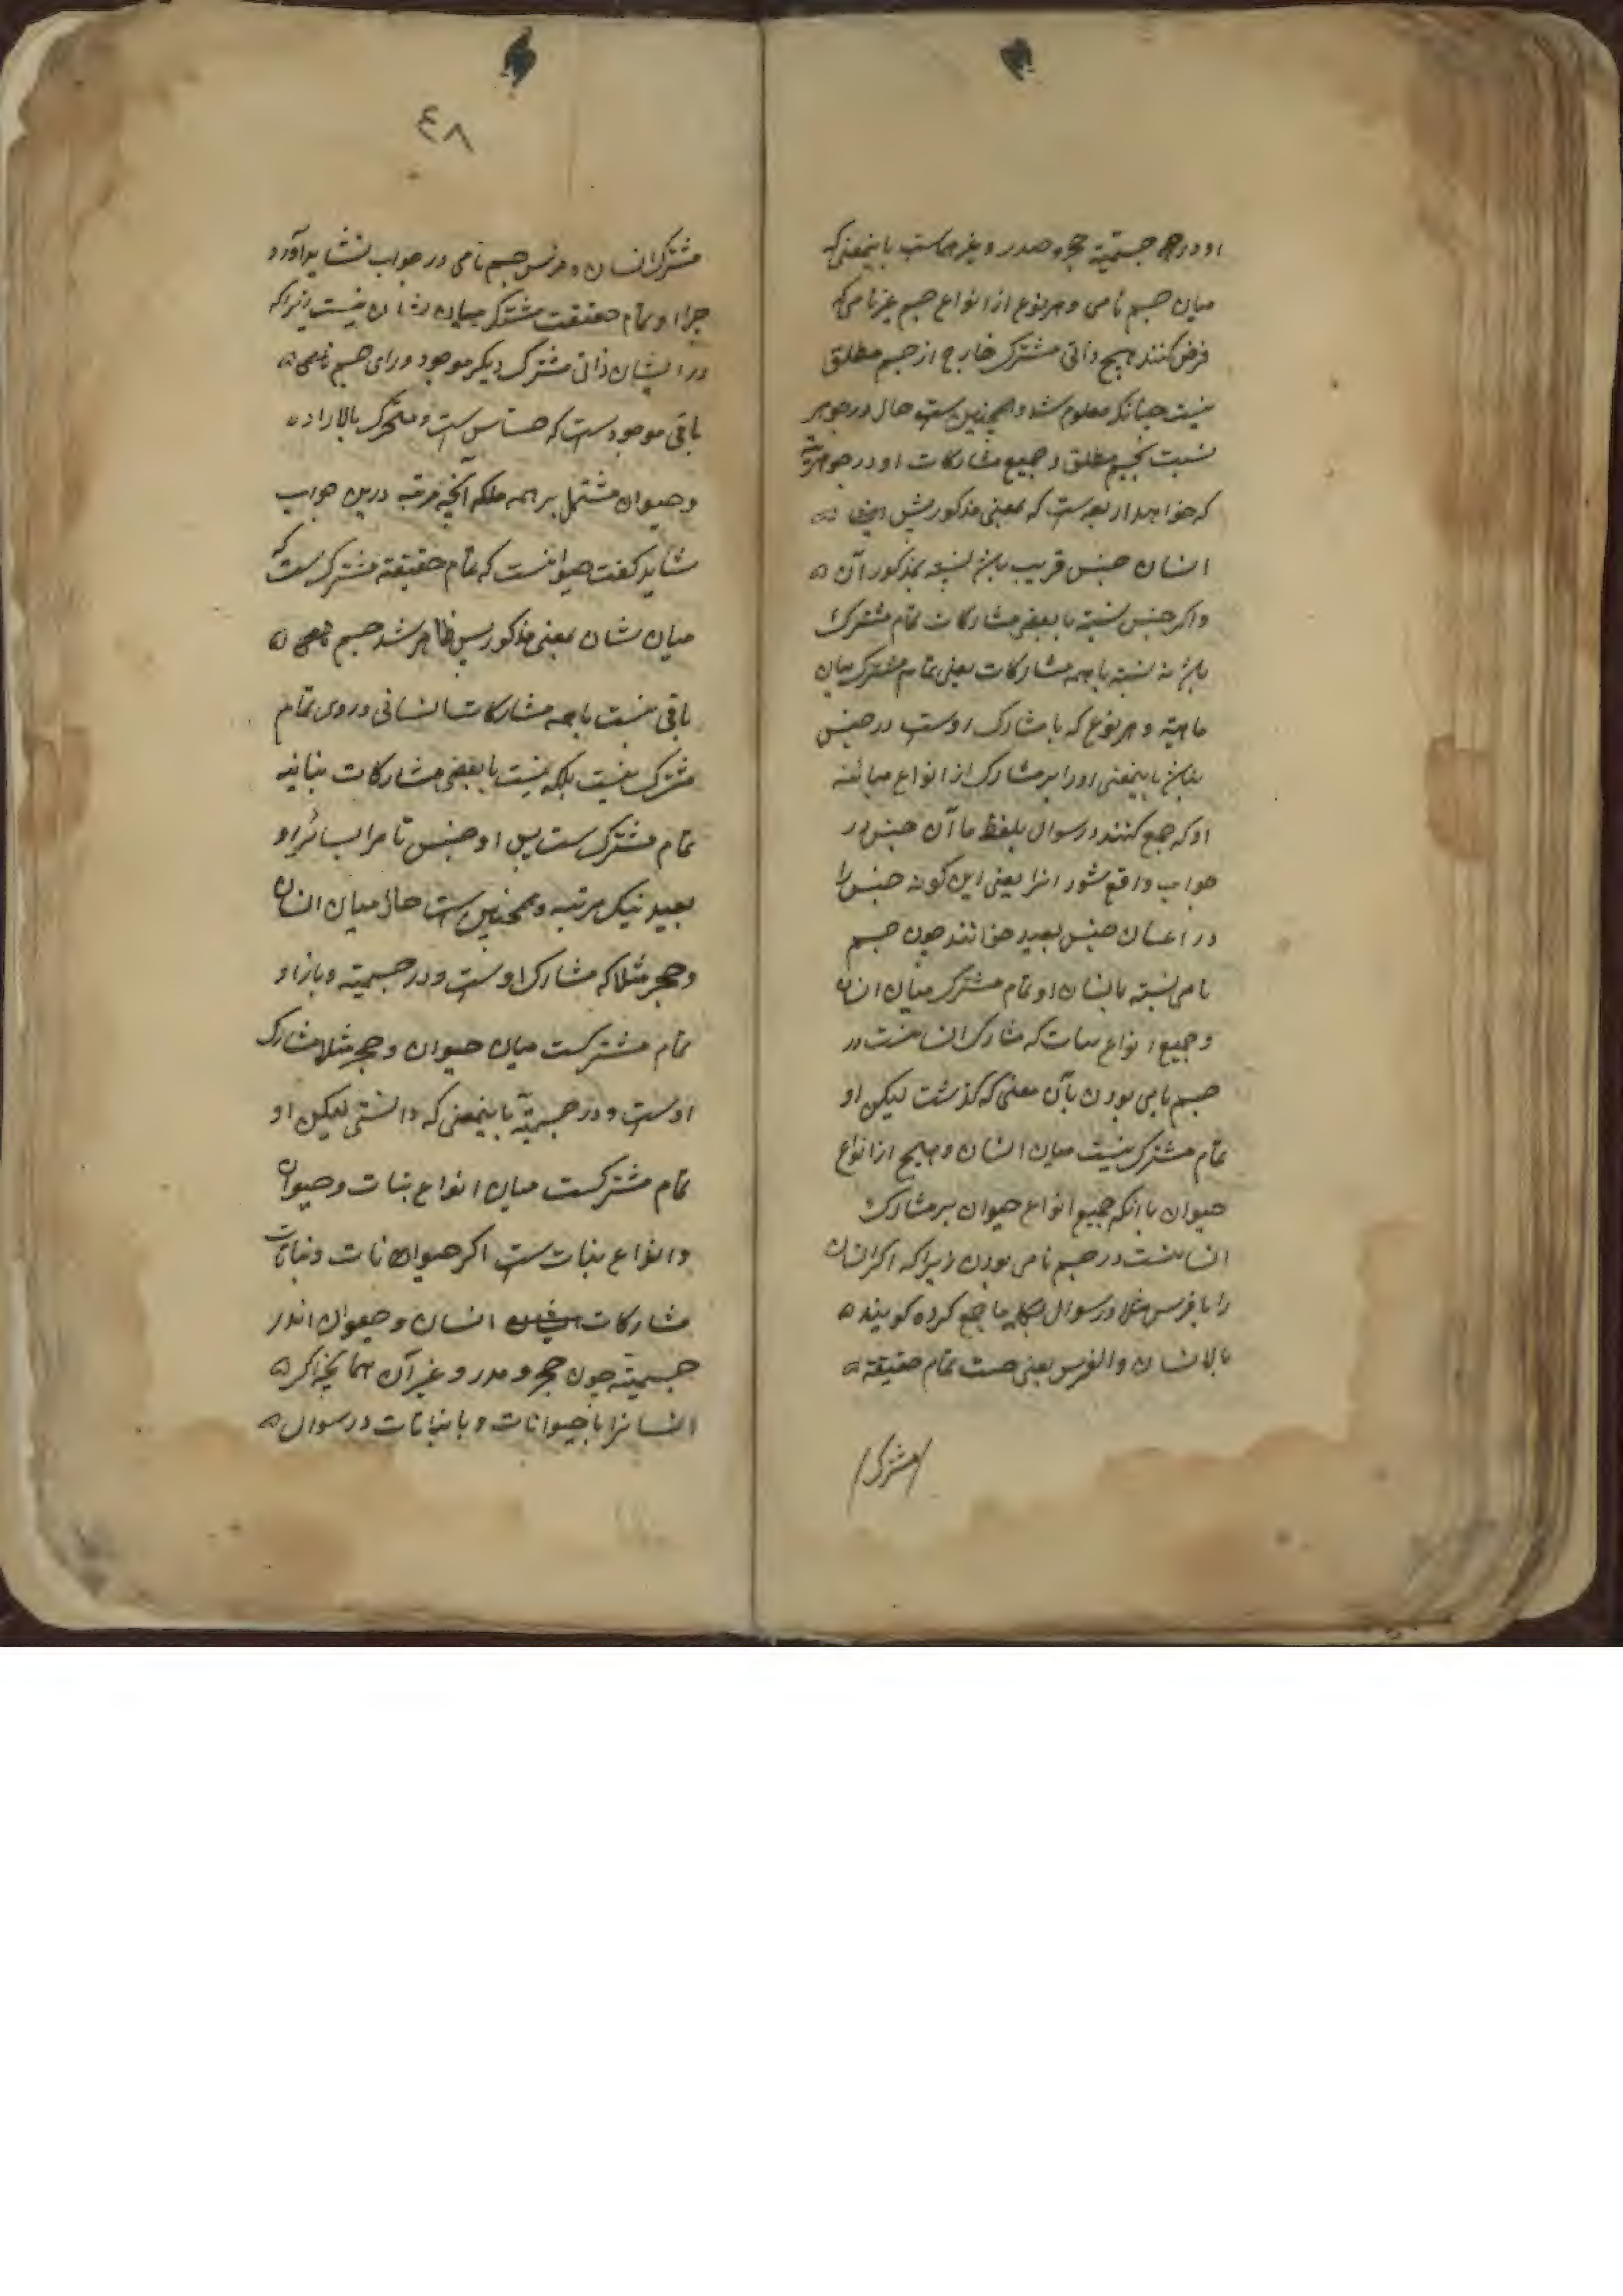 او در جسمیّة حجر و مدر و غیرهماست باینمعنی که
میان جسم نامی و هر نوع از انواع جسم غیر نامی که
فرض کنند هیچ ذاتی مشترک خارج از جسم مطلق
نیست چنانکه معلوم شد و همچنین ست حال در جوهر
نسبت بجسم مطلق و جمیع مشارکات او در جوهریة
که خواهد از بعد ست که بمعنی مذکور پیش
انسان جنس قریب باشد نسبة بمذکور آن
و اکر جنس نسبة با بعضی مشارکات تمام مشترک
باشد نه نسبة با همه مشارکات یعنی تمام مشترک میان
ماهیة و هر نوع که با مشارک اوست در جنس
نباشد باینمعنی او را بر مشارک از انواع مباینه
او که جمع کنند در سوال بلفظ ما آن جنس در
جواب واقع شود انرا یعنی این کونه جنس را
در اعیان جنس بعید خوانند چون جسم
نامی نسبة بانسان او تمام مشترک میان انسان
و جمیع انواع نبات که مشارک انسانست در
جسم نامی بودن بآن معنی که گذشت لیکن او
تمام مشترک نیست میان انسان و هیچ از انواع
حیوان با آنکه جمیع انواع حیوان بر مشارک
انسانست در جسم نامی بودن زیرا که اکر انسان
را با فرس مثلا در سوال بکلمه ما جمع کرده کویند
ما الانسان و الفرس یعنی چیست تمام حقیقة
مشترک
٤٨
مشترک انسان و فرس جسم نامی در جواب نشاید آورد
چرا او تمام حقیقت مشترک میان شان نیست زیرا که
در ایشان ذاتی مشترک دیکر موجود ورای جسم نامی
باقی موجود ست که حساس ست و متحرک بالاراده
و حیوان مشتمل بر همه بلکه آنچه درین جواب
شاید کفت حیوانست که تمام حقیقة مشترک است
میان شان بمعنی مذکور پس ظاهر شد جسم نامی
باقی نیست با همه مشارکات انسانی در وی تمام
مشترک نیست بلکه نسبت با بعضی مشارکات نباتیه
تمام مشترک ست پس او جنس تام مر انسانرا و
بعید بیک مرتبه و همچنین ست حال میان انسان
و حجر مثلا که مشارک اوست و در جسمیة و باز او
تمام مشترکست میان حیوان و حجر مثلا مشارک
اوست و در جسمیة باینمعنی که دانستی لیکن او
تمام مشترکست میان انواع نبات و حیوان
و انواع نبات ست اکر حیوانات و نباتات
مشارکات انسان و حیوان اندر
جسمیة چون حجر و مدر و غیر آن همانچه اکر
انسانرا با حیوانات و با نباتات در سوال